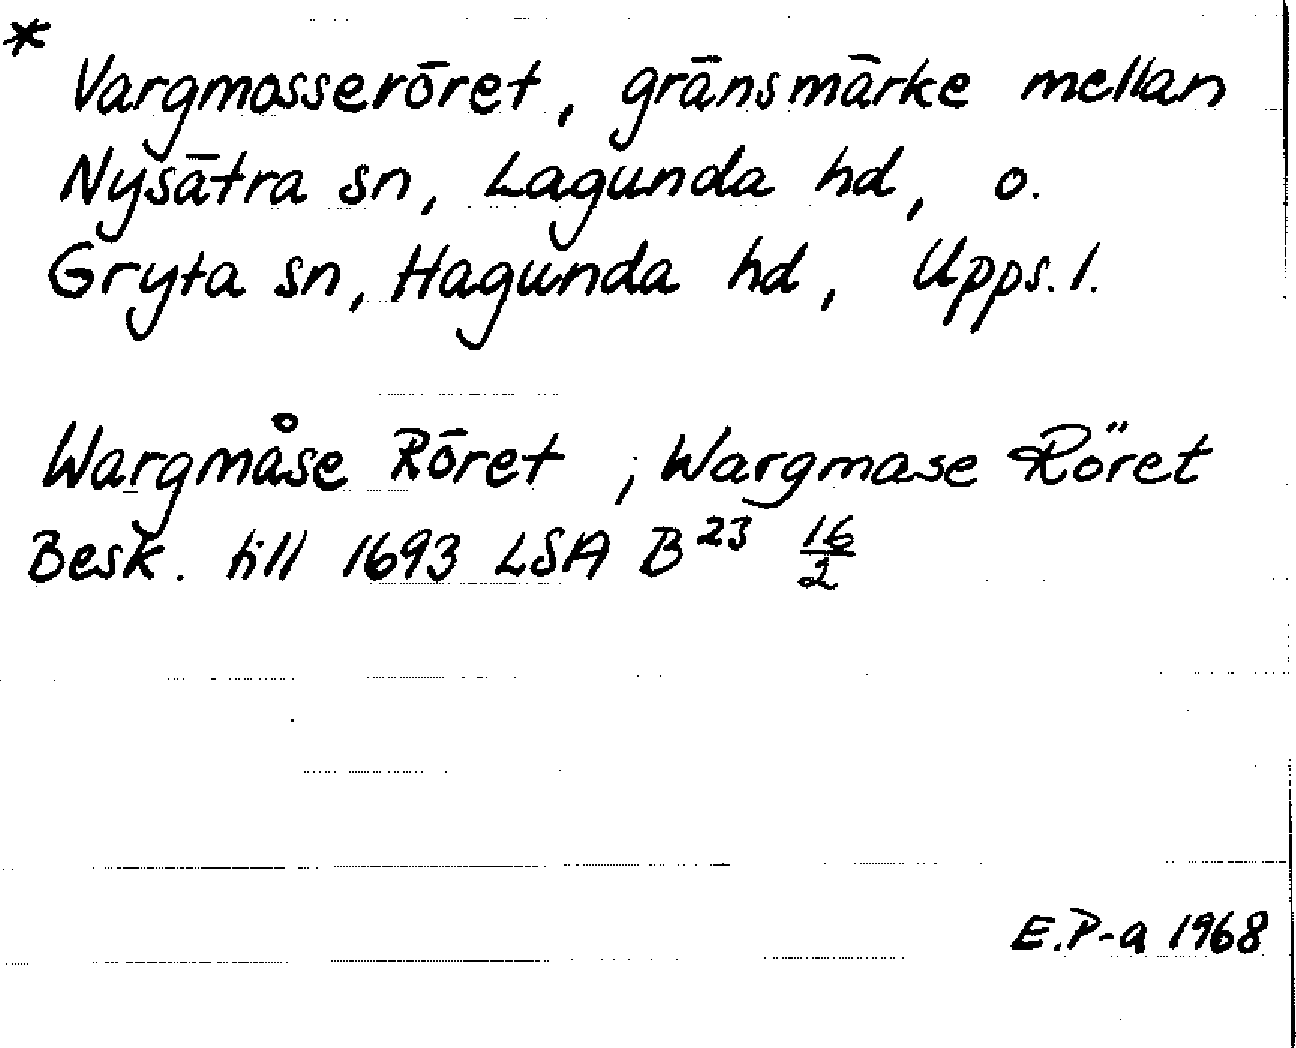 *
Vargmosseröret, gränsmärke mellan
Nysätra sn, Lagunda hd, o.
Gryta sn, Hagunda hd, Upps. l.
Wargmåse Röret ; Wargmase Röret
Besk. till 1693 LSA B²³ 16/2
E.P-a 1968